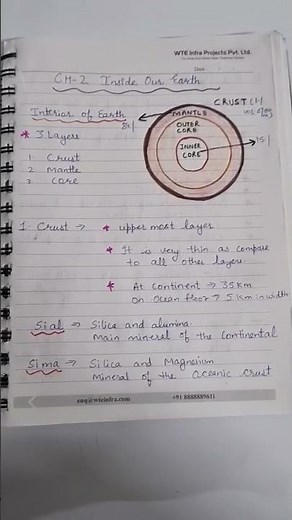 WTE Infra Projects Pvt. Ltd.
CH-2 Inside Our Earth
Interior of Earth
* 3 Layers
1 Crust
2 Mantle
3 Core
CRUST (1%)
MANTLE
OUTER CORE
INNER CORE
1. Crust → * upper most layer
* It is very thin as compare
to all other layers
* At continent → 35 Km
On ocean floor → 5 Km in width
Sial → Silica and alumina
Main mineral of the continental
Sima → Silica and Magnesium
Mineral of the oceanic crust
enq@wteinfra.com
+91 8888889611